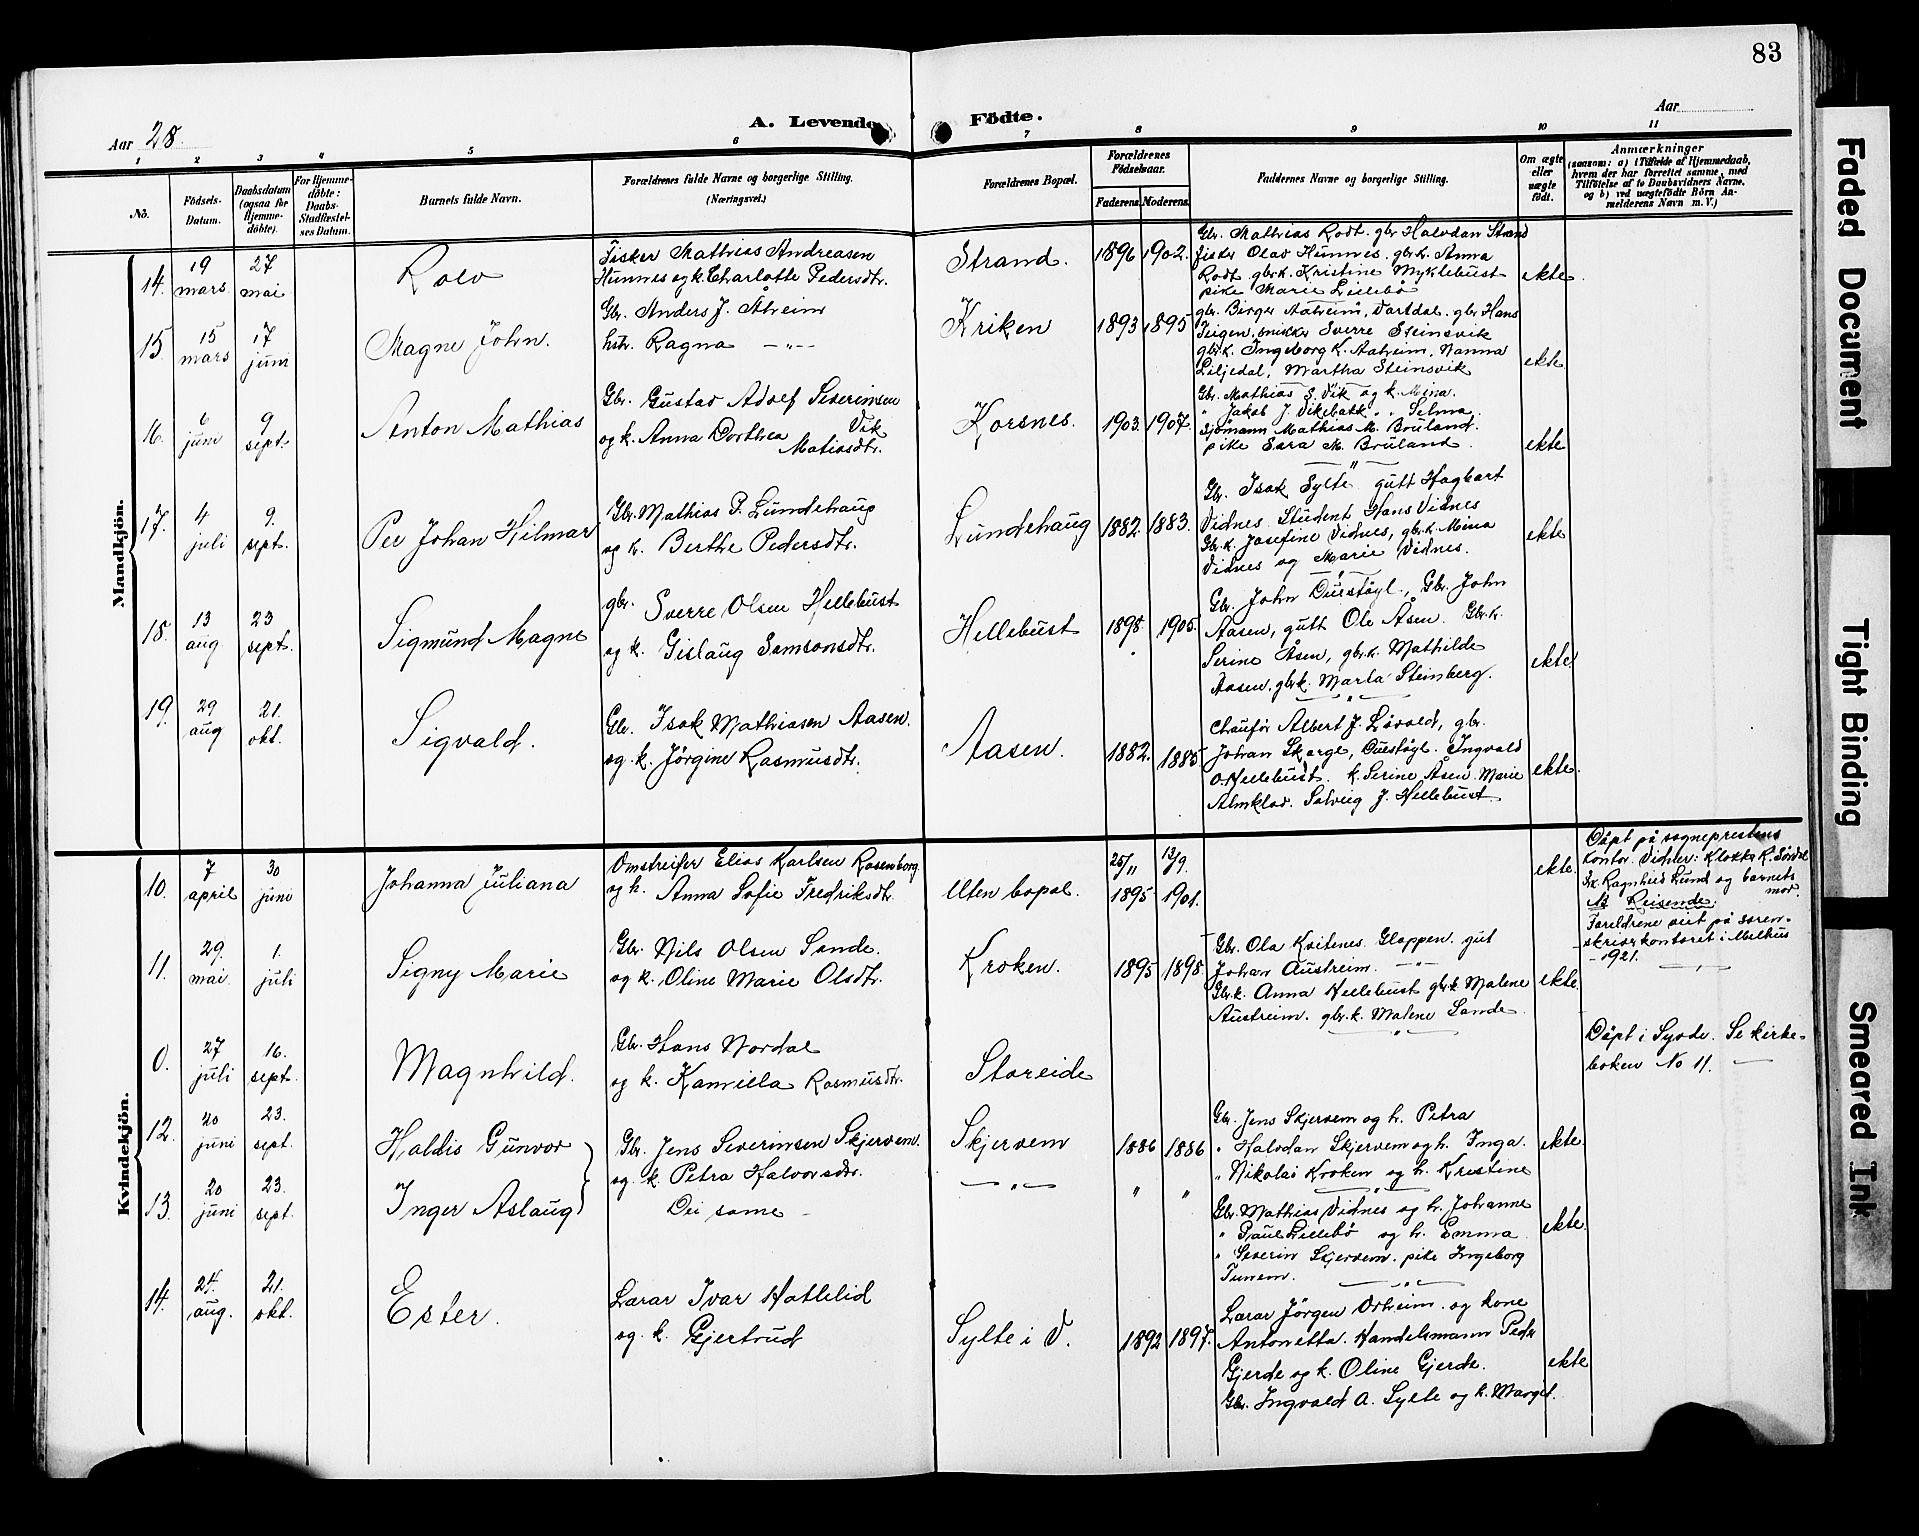 83
Aar
Aar 28.
A. Levende
Födte.
1 2 3 4 5 6 7 8 9 10 11
No.
Födsels-
Datum.
Daabsdatum
(ogsaa for
Hjemme-
döbte).
For Hjemme-
döbte:
Daabs-
Stadfæstel-
ses Datum.
Barnets fulde Navn.
Forældrenes fulde Navne og borgerlige Stilling.
(Næringsvei.)
Forældrenes Bopæl.
Forældrenes
Födselsaar.
Faderens.
Moderens.
Faddernes Navne og borgerlige Stilling.
Om ægte
eller
uægte
födt.
Anmærkninger
(saasom: a) i Tilfælde af Hjemmedaab,
hvem der har forrettet samme, med
Tilföielse af to Daabsvidners Navne,
og b) ved uægtefödte Börn An-
melderens Navn m. V.)
Mandkjön.
14.
19
mars
27
mai
Rolv
Fisker Mathias Andreasen
Hunnes og k. Charlotte Pedersdtr.
Strand.
1896
1902.
Gbr. Mathias Rodt. gbr Halvdan Strand
fisker Olav Hunnes. gbr.k. Anna
Rodt gbr.k. Kristine Myklebust
pike Marie Lillebö
ekte
15.
15
mars
17
juni
Magne John.
Gbr. Anders J. Åheim
hstr. Ragna —"—
Kriken
1893
1895
gbr. Birger Aaheim, Vartdal. gbr Hans
Teigen, snikker Sverre Steinsvik
gbr.k. Ingeborg K. Aaheim, Nanna
Liljedal, Martha Steinsvik
ekte
16.
6
juni
9
sept.
Anton Mathias
Gbr. Gustav Adolf Severinsen
Vik
og k. Anna Dorthea
Matiasdtr.
Korsnes.
1903.
1907.
Gbr. Mathias S. Vik og k. Mina.
" Jakob J. Vikebakk " " Selma.
Sjömann Mathias M. Bruland.
pike Sara M. Bruland
ekte
17.
4
juli
9.
sept.
Per Johan Hilmar
Gbr. Mathias P. Lundehaug
og k. Berthe Pedersdtr.
Lundehaug
1882.
1883.
Gbr. Isak Sylte gutt Hagbart
Vidnes Student Hans Vidnes
Gbr.k. Josefine Vidnes, gbr.k. Mina
Vidnes og Marie Vidnes.
ekte
18.
13
aug
23
sept.
Sigmund Magne
gbr. Sverre Olsen Hellebust
og k. Gislaug Samsonsdtr.
Hellebust
1898.
1905.
Gbr. John Duestöyl, Gbr. John
Aasen, gutt Ole Åsen. Gbr.k.
Serine Åsen, gbr.k. Mathilde
Aasen, gbr.k. Marta Steinberg.
ekte
19.
29
aug
21.
okt.
Sigvald.
Gbr. Isak Mathiasen Aasen.
og k. Jörgine Rasmusdtr.
Aasen.
1882.
1885
Chauför Albert J. Lövold, gbr.
Johan Skorge, Duestöyl. Ingvald
O. Hellebust. k. Serine Åsen. Marie
Almklov. Solveig J. Hellebust
ekte.
Kvindekjön.
10.
7
april
30
juni
Johanna Juliana
Omstreifer Elias Karlsen Rosenborg
og h. Anna Sofie Fredriksdtr.
Uten bopæl.
25/11
1895
13/9.
1901.
ekte.
Döpt på sogneprestens
kontor. Vidner: Klokker K. Söndal
Frk. Ragnhild Lund og barnets
mor.
NB Reisende.
Foreldrene viet på soren-
skriverkontoret i Melhus
1921.
11.
29.
mai.
1.
juli
Signy Marie
Gbr. Nils Olsen Sande.
og k. Oline Marie Olsdtr.
Kroken.
1895
1898.
Gbr. Ola Kvitenes. Gloppen. gut
Johan Austreim. —"—
Gbr.k. Anna Hellebust gbr.k Malene
Austreim. gbr.k. Malene Sande.
ekte.
0.
27
juli
16.
sept.
Magnhild.
Gbr. Hans Nordal
og k. Kamilla Rasmusdtr.
Storeide
Döpt i Syvde. Se kirke-
boken No 11.
12.
20
juni
23.
sept.
Haldis Gunvor
Gbr. Jens Severinsen Skjervem.
og k. Petra Halvorsdtr.
Skjervem
1886
1886
Gbr. Jens Skjervem og h. Petra
" Halvdan Skjervem og h. Inga.
" Nikolai Kroken og h. Kristine
ekte.
13.
20
juni
23.
sept.
Inger Aslaug
Dei same —
— " —
"
"
Gbr. Mathias Vidnes og h. Johanne
" Paul Lillebö og h. Emma
" Severin Skjervem. pike Ingeborg
Tunem.
ekte.
14.
24.
aug.
21.
okt.
Ester.
Lærar Ivar Hatlelid
og k. Gjertrud
Sylte i V.
1892
1897.
Lærar Jörgen Orheim og kone
Antonetta. Handelsmann Peder
Gjerde og k. Oline Gjerde.
Gbr. Ingvald A. Sylte og k. Marget.
ekte
Faded Document
Tight Binding
Smeared Ink